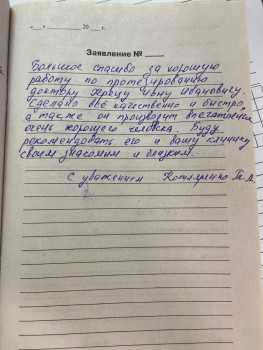 «__»__________20___г.
Заявление № ____
Большое спасибо за хорошую
работу по протезированию
доктору Ивану Ивановичу.
Сделано всё качественно и быстро,
а также он производит впечатление
очень хорошего человека. Буду
рекомендовать его и вашу клинику
своим знакомым и близким.
С уважением